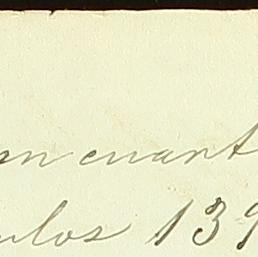 en cuant
ulos 139